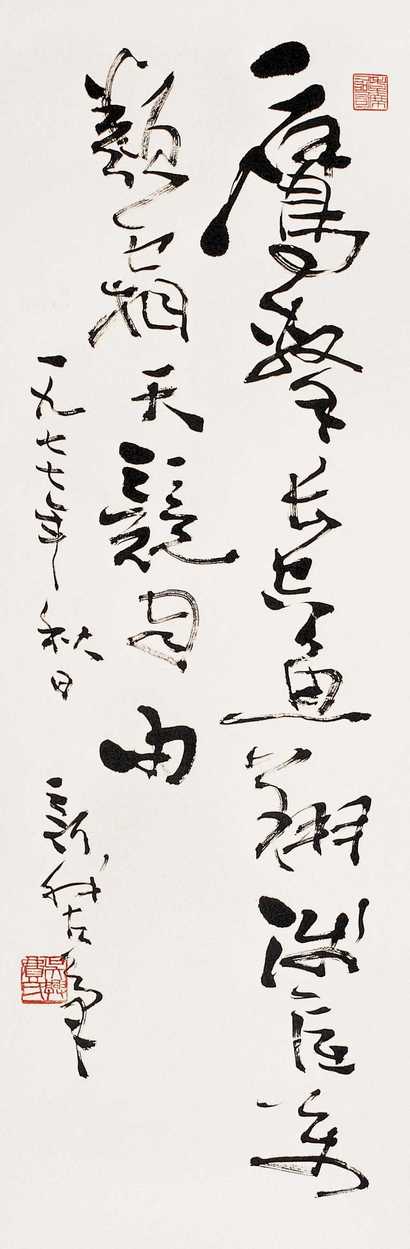 鷹擊长空魚翔淺底萬
類霜天競自由
一九七七年秋日
新我左筆